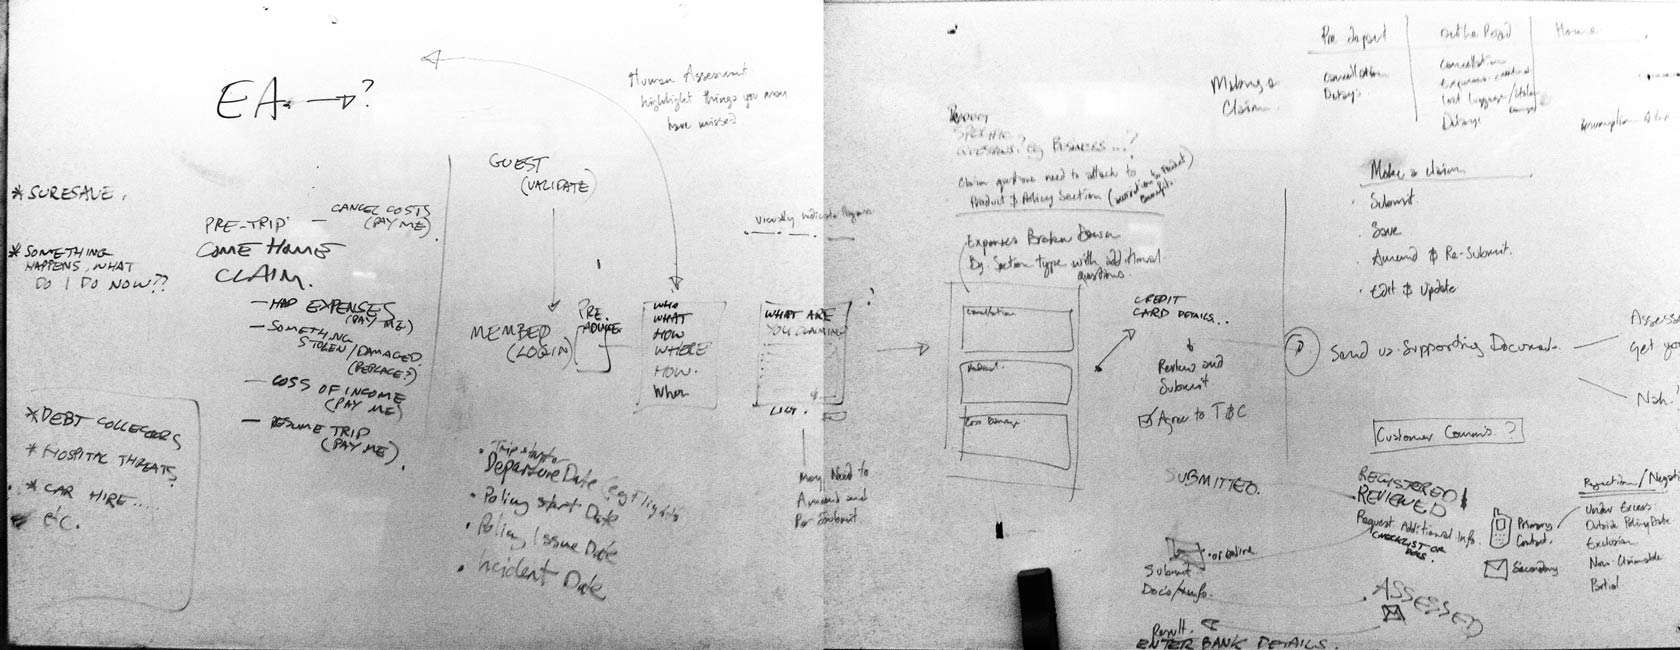 EA. → ?
Human Assessment
highlight things you may
have missed
GUEST
(VALIDATE)
* SURESAVE.
* SOMETHING
HAPPENS, WHAT
DO I DO NOW??
PRE-TRIP
- CANCEL COSTS
(PAY ME)
COME HOME
CLAIM.
- HAD EXPENSES
(PAY ME)
- SOMETHING
STOLEN/DAMAGED
(REPLACE?)
- LOSS OF INCOME
(PAY ME)
- RESUME TRIP
(PAY ME)
* DEBT COLLECTORS
* HOSPITAL THREATS?
* CAR HIRE.....
ETC.
MEMBER
(LOGIN)
PRE.
WHO
WHAT
HOW
WHERE
HOW.
When
Visually indicate
WHAT ARE
YOU CLAIMING
LIST.
May Need to
Amend and
Re Submit
Departure Date
• Policy Start Date
• Policy Issue Date
• Incident Date
SPECIFIC
QUESTIONS? eg BUSINESS...?
Claim questions need to attach to
Product & Policy Section
Expenses Broken Down
By Section type with additional
questions.
Cancellation
CREDIT
CARD DETAILS..
Review and
Submit
Agree to T&C
Making a
Claim.
Cancellation
Delays
On the Road
Cancellation
Delays
Home
Make a claim
• Submit
• Save
• Amend & Re-Submit.
• Edit & Update
Send us Supporting Document.
Get
Nah!
Customer Comms.?
SUBMITTED.
REGISTERED
REVIEWED
Request Additional Info.
CHECKLIST OR
DOCS.
Primary
Contact.
Secondary
Rejection/
Under Excess
Outside Policy Date
Exclusion
Non-Claimable
Partial
or online
Submit
Docs/Info.
ASSESSED
Result.
ENTER BANK DETAILS.